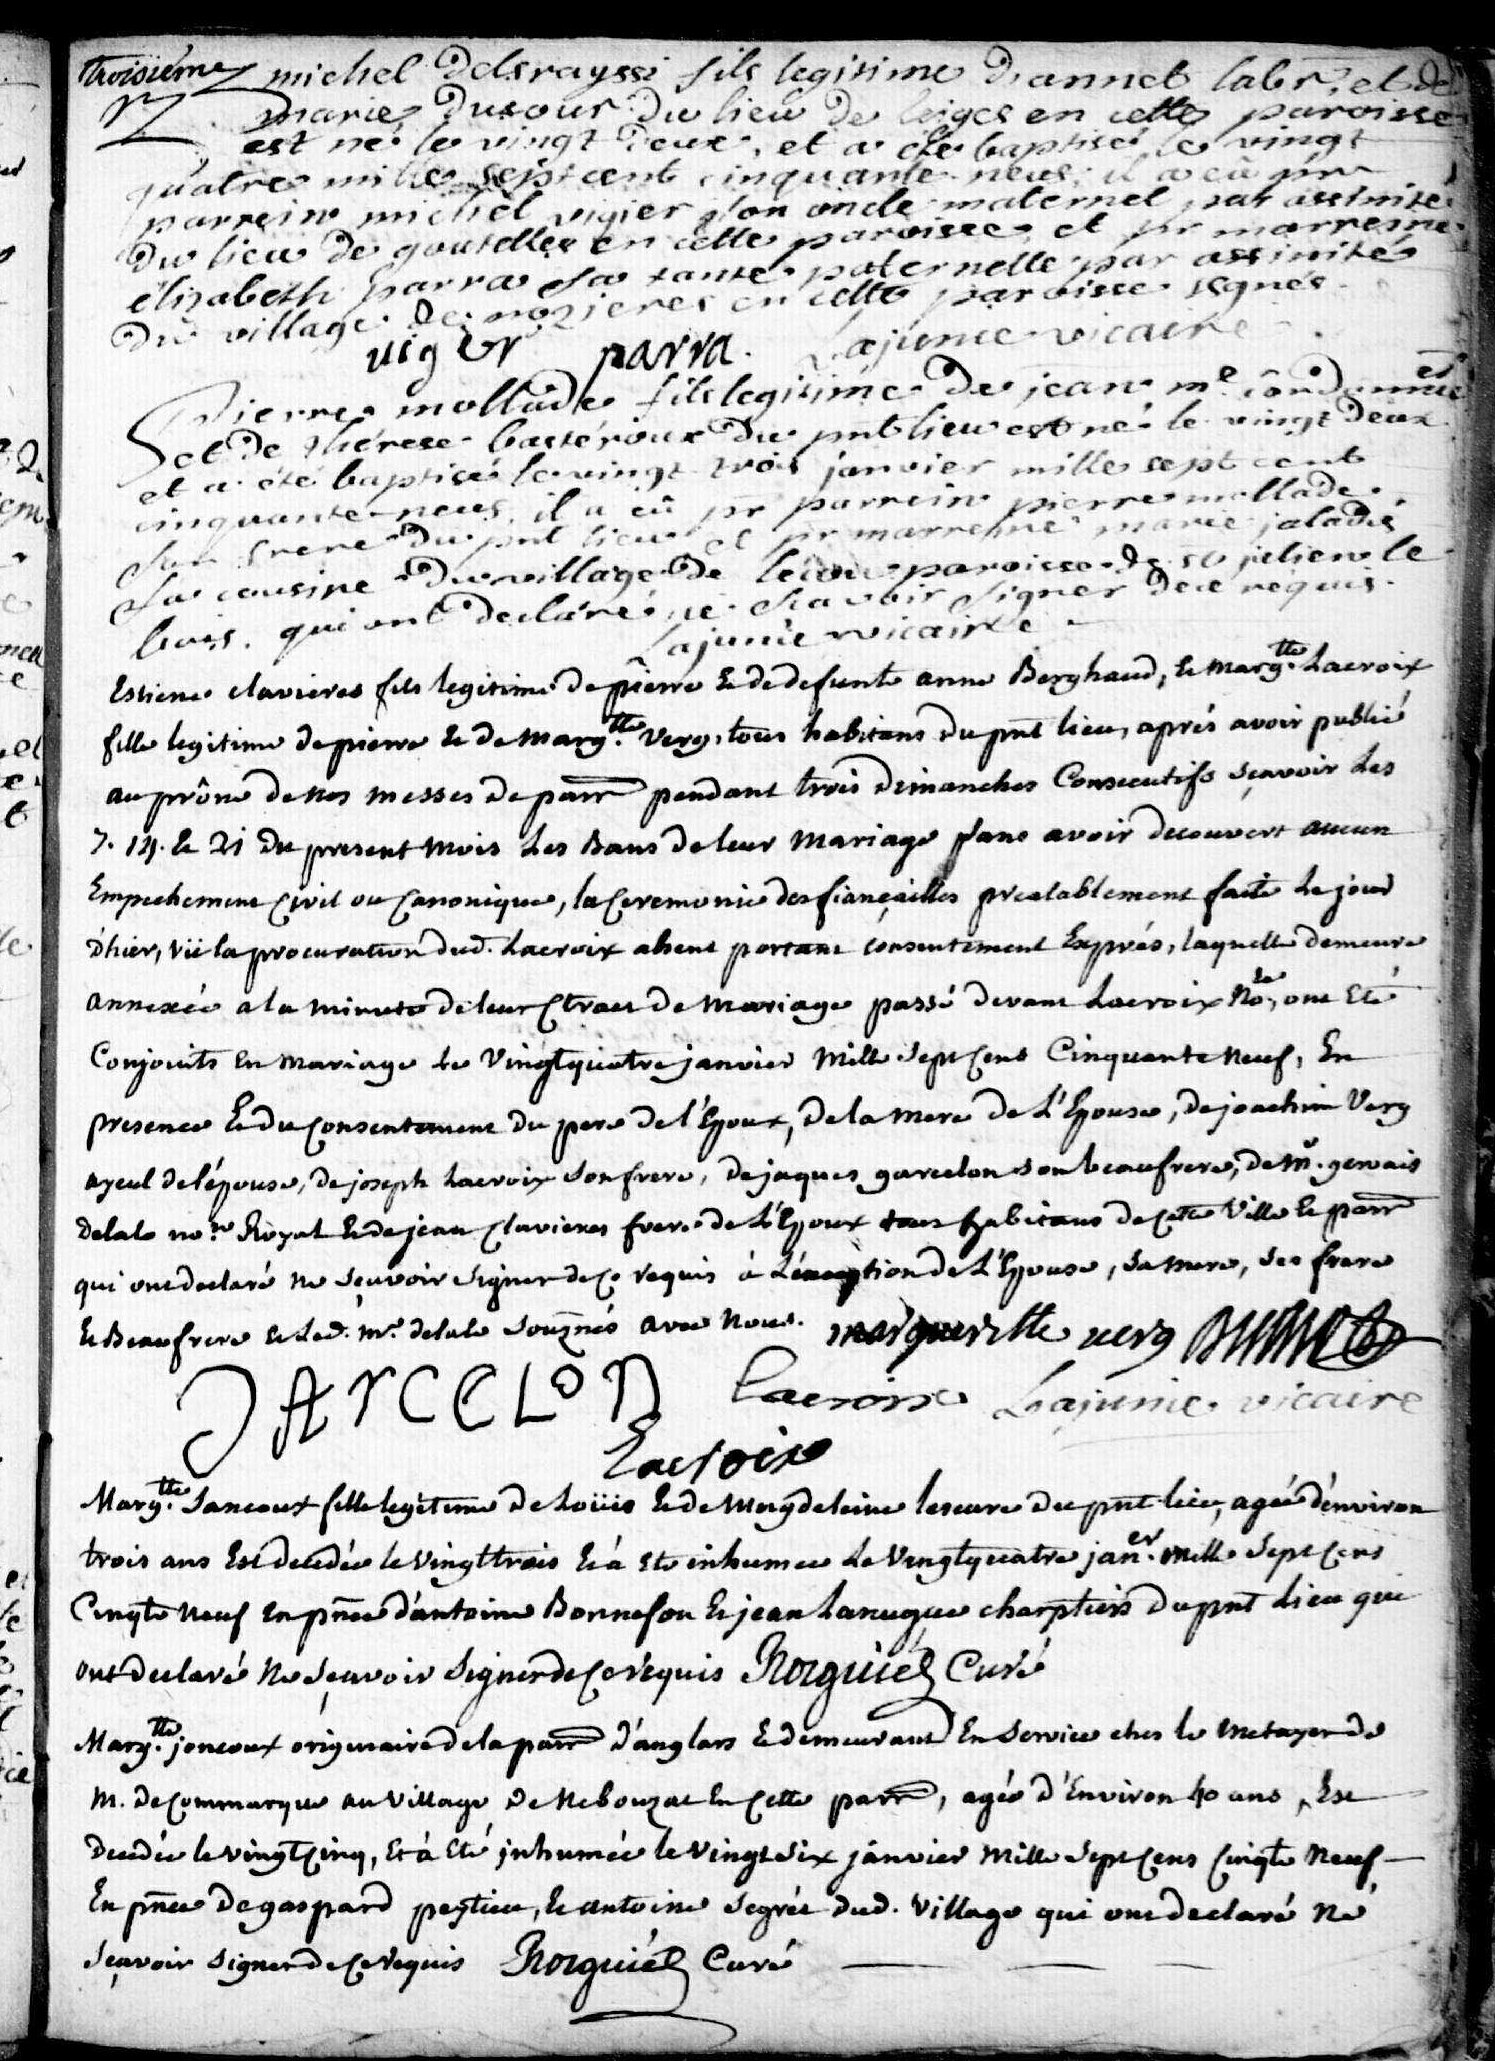 troisième michel delsrayssi fils legitime d'annet labr, et de
marie dufour du lieu de leiges en cette paroisse
est né le vingt deux, et a été baptisé le vingt
quatre mille sept cent cinquante neuf, il a eû pr
parrein michel vigier son oncle maternel par affinité
du lieu de goutelles en cette paroisse et pr marreine
élizabeth parra sa tante paternelle par affinité
du village de nozieres en cette paroisse signés
vigier parra. Lajunie vicaire
Pierre mollade fils legitime de jean me cordonnier
et de thérese basteroux du pnt lieu est né le vingt deux
et a été baptisé le vingt trois janvier mille sept cent
cinquante neuf, il a eû pr parrein pierre mollade
son frere du pnt lieu et pr marreine marie jaladis
sa cousine du village de paroisse de st julien le
bois. qui ont déclaré ne sçavoir signer de ce requis.
Lajunie vicaire
Estiene clavieres fils legitime de pierre & de defunte anne Berghaud, & Margtte Lacroix
fille legitime de pierre & de Margtte Very, tous habitans du pnt lieu, aprés avoir publié
au prône de nos messes de parr pendant trois dimanches Consecutifs sçavoir Les
7. 14. & 21 du present mois Les Bans de leur mariage sans avoir decouvert aucun
Empechement civil ou canonique, la ceremonie des fiançailles prealablement faite le jour
d'hier, vû la procuration dud. Lacroix absent portant consentement Exprés, laquelle demeure
annexée a la minute de leur Ctract de Mariage passé devant Lacroix Nore, ont Eté
Conjoints En mariage le Vingtquatre janvier Mille sept Cens Cinquante Neuf, En
presence & du Consentement du pere de l'Epoux, de la mere de L'Epouse, de joachim Very
ayeul de l'épouse, de joseph Lacroix son frere, de jaques garcelon son beaufrere, de Mr. gervais
Delale nore Royal & de jean Clavieres frere de L'Epoux tous habitans de cette Ville & parr
qui ont declaré ne sçavoir signer de ce requis à L'éxception de L'Epouse, sa mere, ses frere
& Beaufrere & Led. mr. delale souznés avec Nous. margueritte very
JArCELOn Lacroix Lajunie vicaire
Lacroix
Margtte Janeoux fille legitime de Loüis & de Magdeleine lescure du pnt lieu, agée d'environ
trois ans Est decedée le Vingttrois & à Eté inhumée Le Vingtquatre janer. Mille Sept Cens
Cinqte Neuf En pñce d'antoine Bonnefon & jean Lanugue charptiers du pnt Lieu qui
ont declaré Ne Sçavoir Signer de Ce requis Rorguiés Curé
Margtte. joneoux originaire de la parr d'anglars & demeurant En Service ches le Metayer de
M. de Commarque au Village de Nebouzat En Cette parr, agée d'Environ 40 ans, Est
decedée le vingt Cinq, Et à Eté inhumée le Vingt Six janvier Mille Sept Cens Cinqte Neuf
En pñce de gaspard pestieu, & antoine segrét dud. Village qui ont declaré Né
Sçavoir Signer de Ce requis Rorguiés Curé